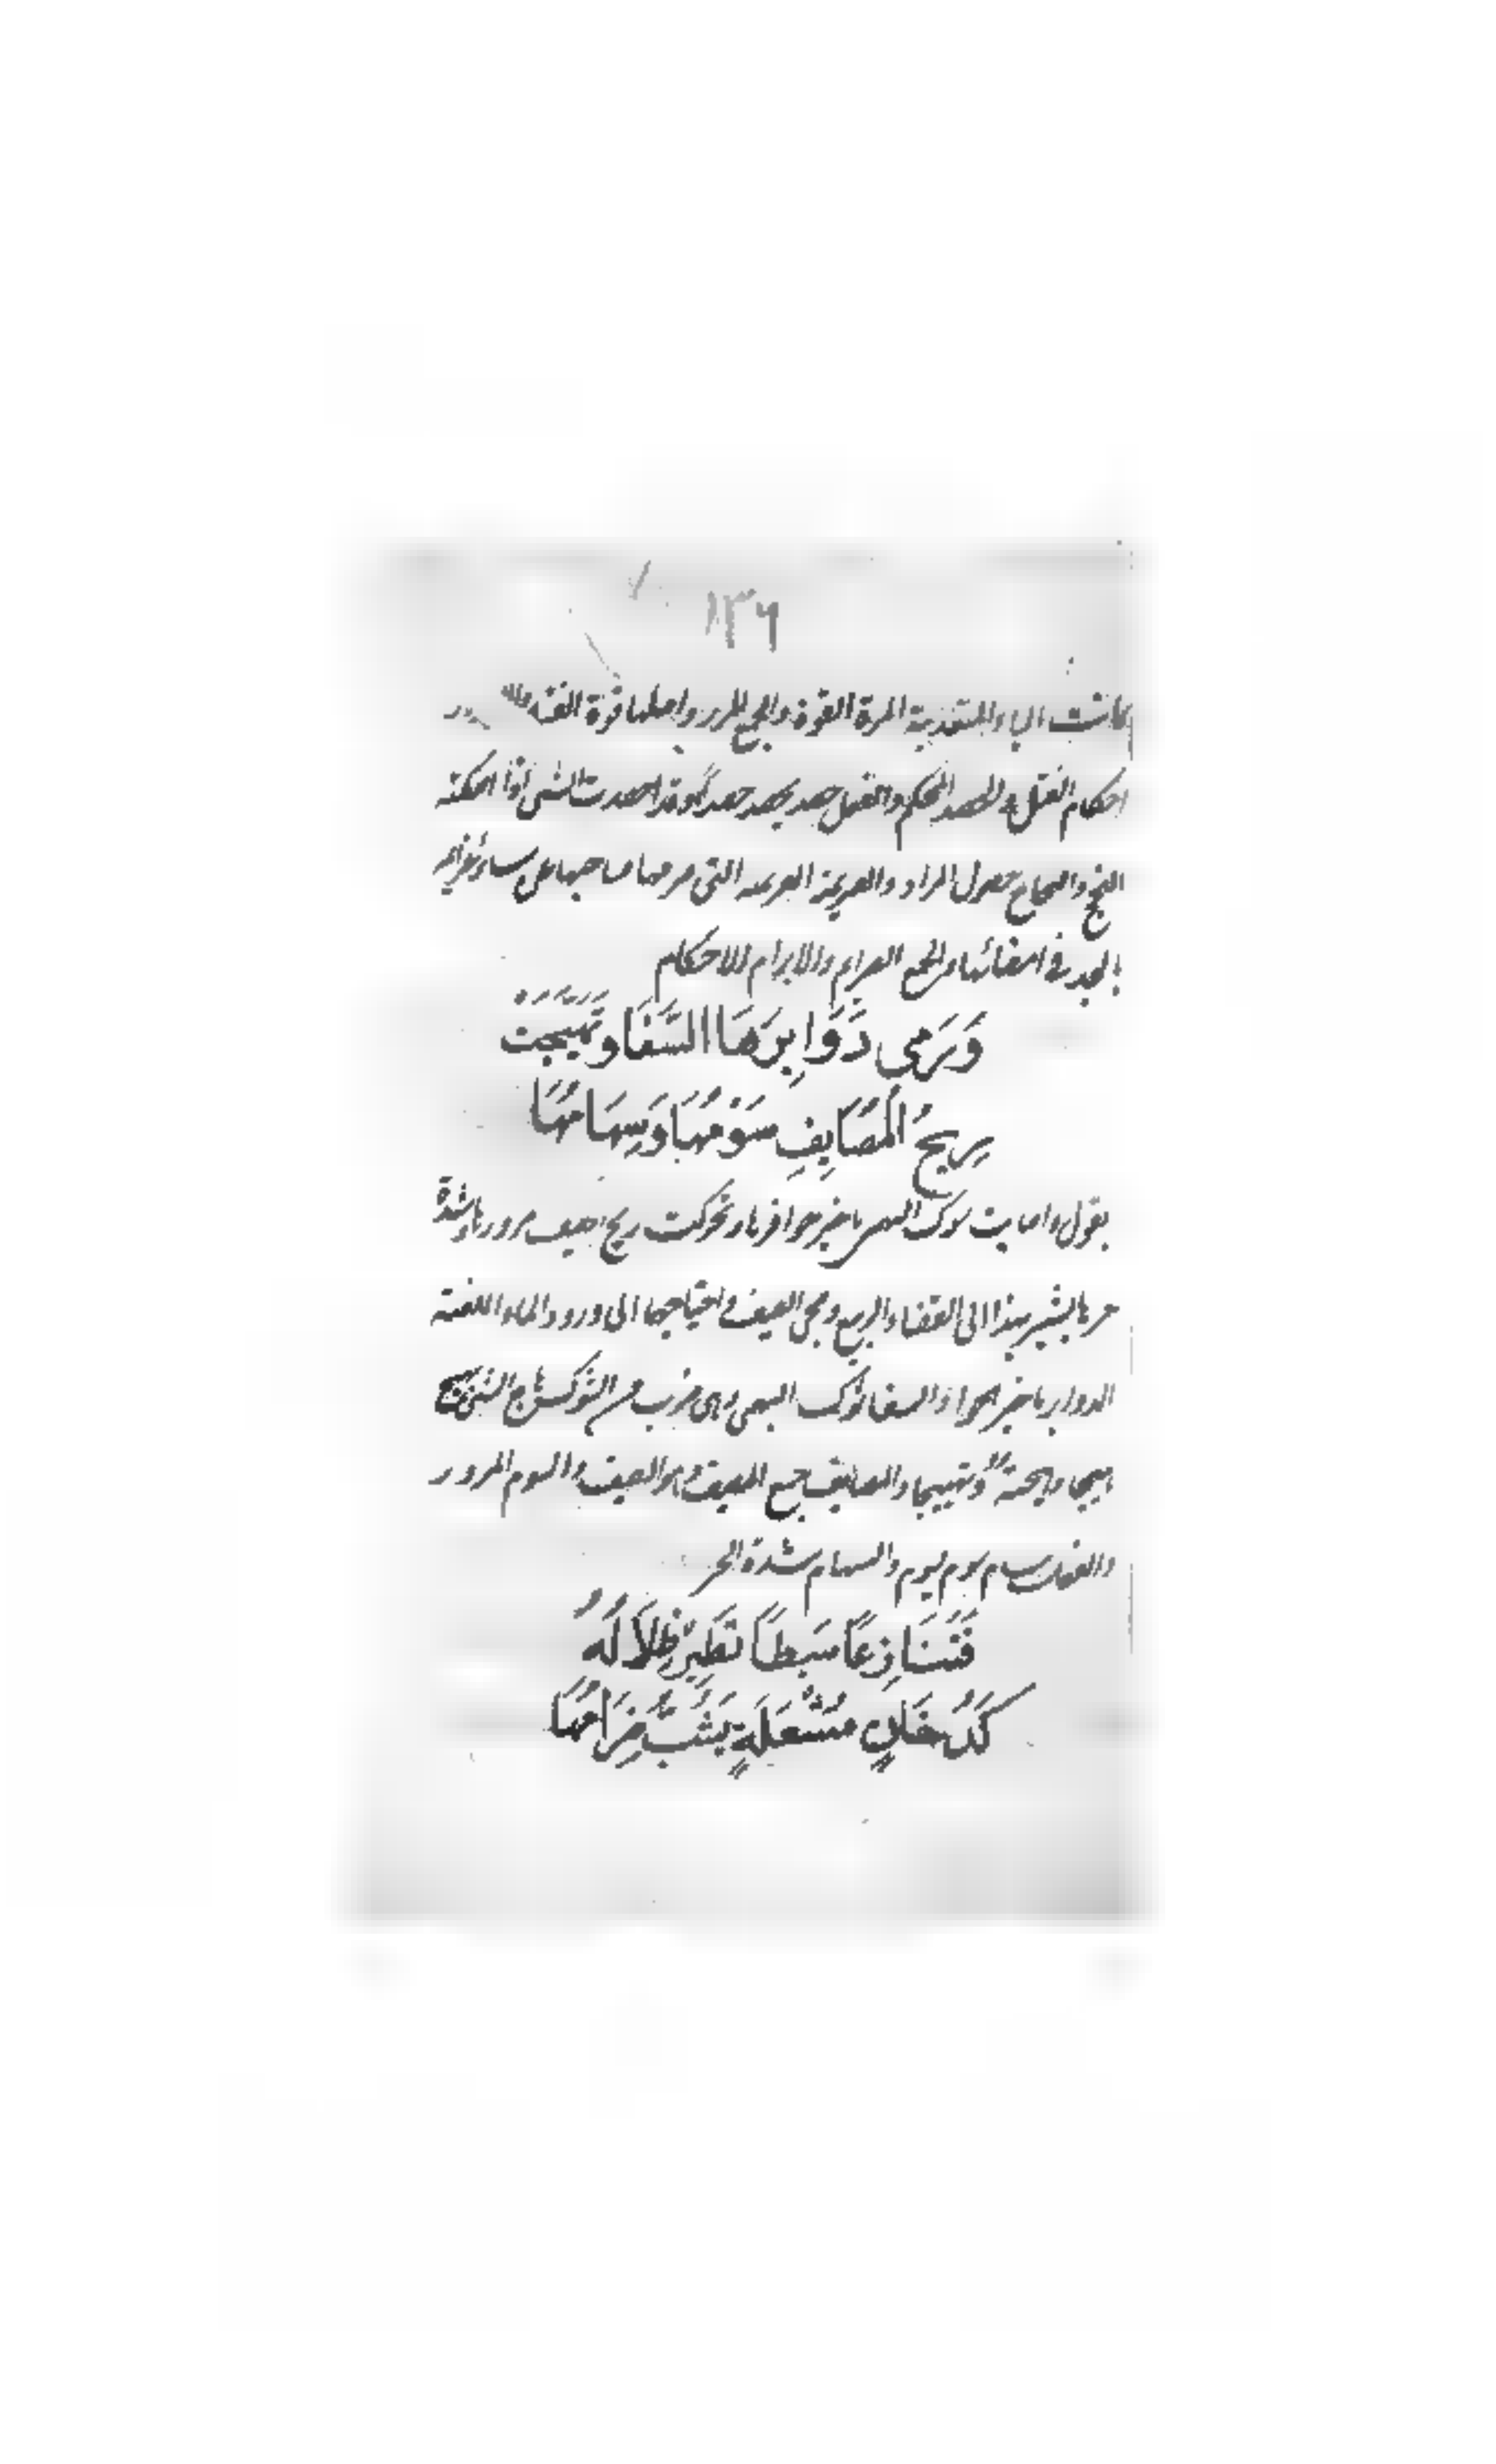 ١٣٦
كانت الباء للتعدية المرة القوة والجمع المرر واصلها قوة الفتل
احكام الفتل والحصد المحكم والفعل حصد يحصد حصدا وقد احصدت الشىء اذا احكمته
النجح والنجاح حصول المراد والصريمة العزيمة التى صرمها صاحبها عن ساير عزايمه
بالجد فى امضائها والجمع الصرايم والابرام الاحكام
وَرَمى دَوَابِرَهَا السَّفَا وَتَهَيَّجَتْ
رِيحُ الْمَصَايِفِ سَوْمُهَا وَسِهَامُهَا
يقول واصابت شوك البهمى ماخير حوافرها وتحركت ريح الصيف مرورها وشدة
حرها يشير بهذا الى انقضاء الربيع ومجى الصيف واحتياجها الى ورود الماء اللغة
الدوابر ماخير الحوافر والسفا شوك البهمى وهى ضرب من الشوك هاج الشىء يهيج
هيجا وتهيجا والمصايف جمع المصيف وهو الصيف والسوم المرور
والفعل سام يسوم والسهام شدة الحر
فَتَنَازَعَا سَبِطًا تَطِيرُ ظِلَالُهُ
كَدُخَانِ مُشْعَلَةٍ يَشُبُّ ضِرَامُهَا